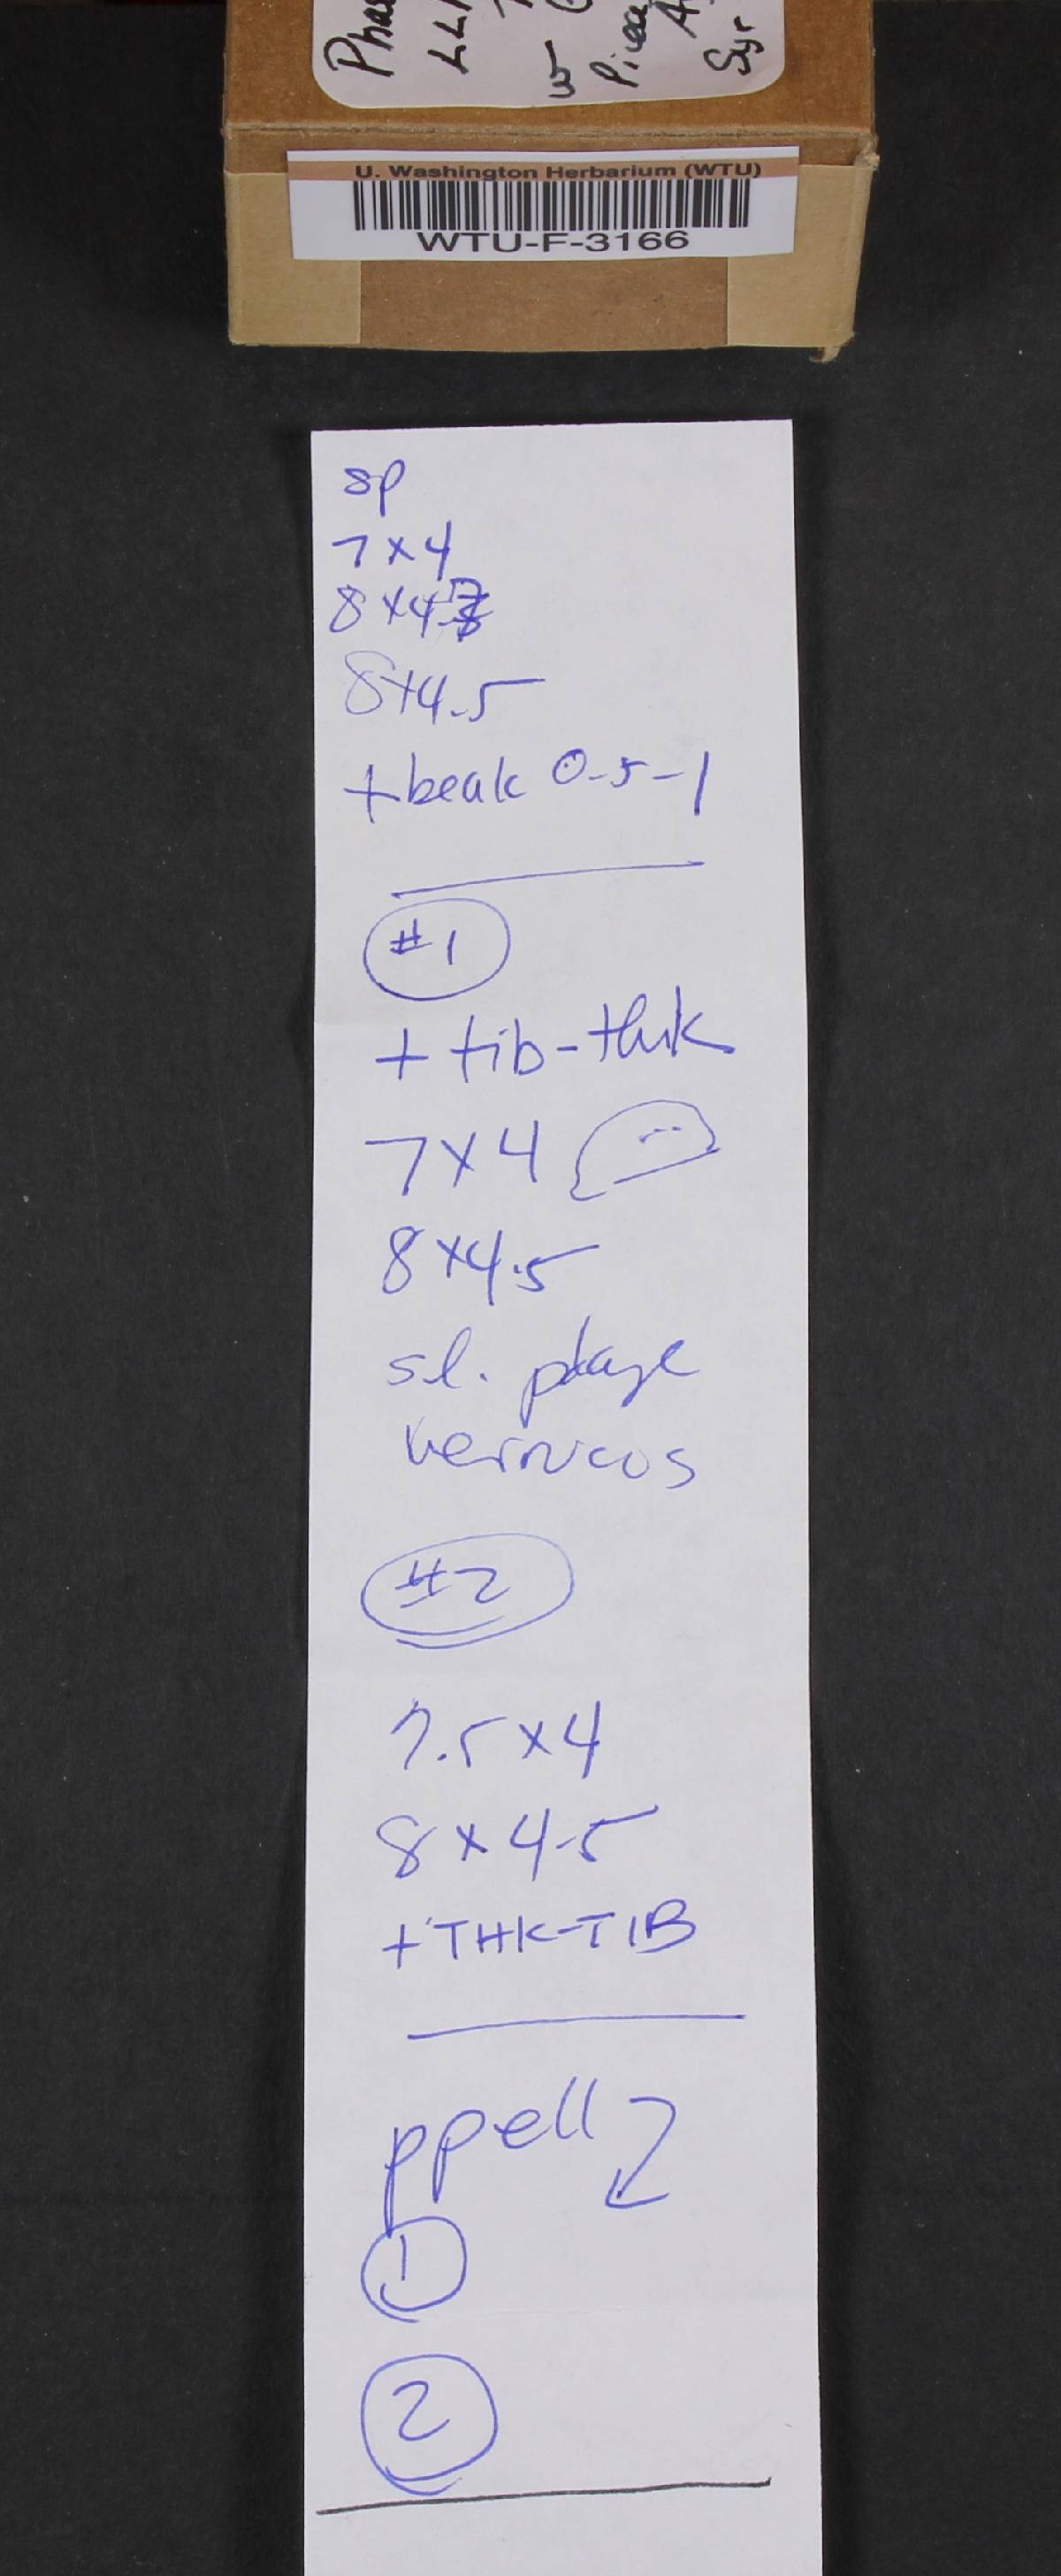 Phae
LLN
w
Picea
A
Syr
U. Washington Herbarium (WTU)
WTU-F-3166
sp
7 x 4
8 x 4.
8 x 4.5
+ beak 0.5-1
#1
+ tib-thk
7 x 4
8 x 4.5
sl. plage
verrucos
#2
7.5 x 4
8 x 4.5
+ THK-TIB
ppell
1
2